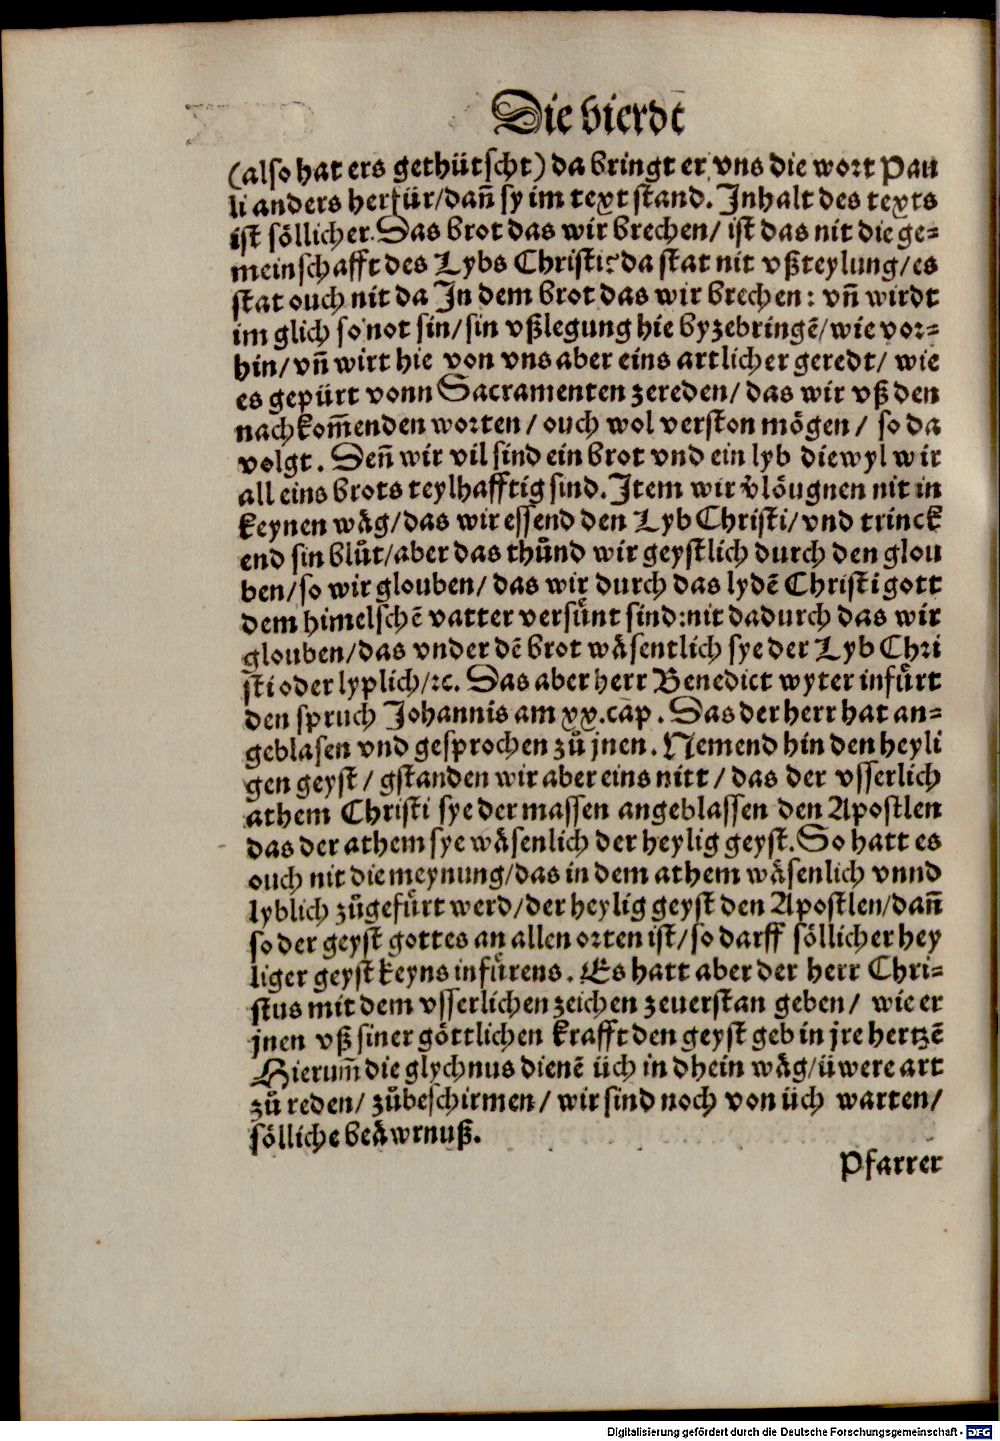 Die vierdt
(also hat ers gethütscht) da bringt er vns die wort Pau
li anders herfür/dañ sy im text stand. Inhalt des texts
ist söllicher. Das brot das wir brechen/ ist das nit die ge⸗
meinschafft des Lybs Christi? da stat nit vßteylung/es
stat ouch nit da In dem brot das wir brechen: vñ wirdt
im glich so not sin/sin vßlegung hie byzebringē/wie vor⸗
hin/vñ wirt hie von vns aber eins artlicher geredt/ wie
es gepürt vonn Sacramenten zereden/ das wir vß den
nachkom̄enden worten/ ouch wol verston mögen/ so da
volgt. Deñ wir vil sind ein brot vnd ein lyb diewyl wir
all eins brots teylhafftig sind. Item wir v̈löugnen nit in
keynen wäg/das wir essend den Lyb Christi/vnd trinck
end sin blůt/aber das thůnd wir geystlich durch den glou
ben/so wir glouben/ das wir durch das lydē Christi gott
dem himelschē vatter versůnt sind:nit dadurch das wir
glouben/das vnder dē brot wäsentlich sye der Lyb Chri
sti oder lyplich/ꝛc. Das aber herr Benedict wyter infůrt
den spruch Johannis am xx.cap. Das der herr hat an⸗
geblasen vnd gesprochen zů jnen. Nemend hin den heyli
gen geyst/ gstanden wir aber eins nitt/ das der vsserlich
athem Christi sye der massen angeblassen den Apostlen
das der athem sye wäsenlich der heylig geyst. So hatt es
ouch nit die meynung/das in dem athem wäsenlich vnnd
lyblich zůgefůrt werd/der heylig geyst den Apostlen/dañ
so der geyst gottes an allen orten ist/so darff söllicher hey
liger geyst keyns infůrens. Es hatt aber der herr Chri⸗
stus mit dem vsserlichen zeichen zeuerstan geben/ wie er
jnen vß siner göttlichen krafft den geyst geb in jre hertzē
Hierum̄ die glychnus dienē üch in dhein wäg/üwere art
zů reden/ zůbeschirmen/ wir sind noch von üch warten/
sölliche beäwrnuß.
Pfarrer
Digitalisierung gefördert durch die Deutsche Forschungsgemeinschaft - DFG